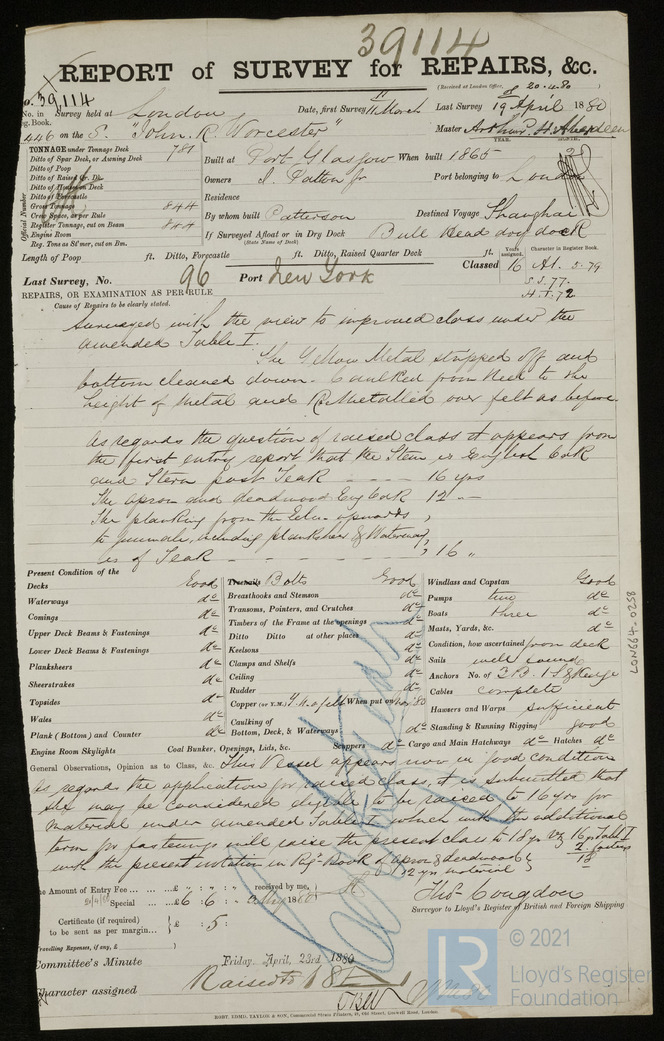 39114
REPORT of SURVEY for REPAIRS, &c.
(Received at London Office, 20.4.80)
No. 39,114
No. in Survey held at London Date, first Survey 11 March Last Survey 19 April 1880
Reg. Book.
446 on the S. "John. R. Worcester" Master Arthur H. Aberdeen
TONNAGE under Tonnage Deck 781
Ditto of Spar Deck, or Awning Deck
Ditto of Poop
Ditto of Raised Qr. Dk.
Ditto of House on Deck
Ditto of Forecastle
Gross Tonnage 844
Crew Space, as per Rule
Register Tonnage, cut on Beam 844
Engine Room
Reg. Tons as St'mer, cut on Bm.
Official Number
YEAR. MONTH.
Built at Port Glasgow When built 1865
Owners J. Patton Jr Port belonging to London
Residence
By whom built Patterson Destined Voyage Shanghai
If Surveyed Afloat or in Dry Dock Bull Head dry dock
(State Name of Dock)
Length of Poop ft. Ditto, Forecastle ft. Ditto, Raised Quarter Deck ft.
Years assigned. Character in Register Book.
Classed 16 A1. 5.79
S.S. 77.
H.T. 72
Last Survey, No. 96 Port New York
REPAIRS, OR EXAMINATION AS PER RULE
Cause of Repairs to be clearly stated.
Surveyed with the view to improved class under the
amended Table I.
The Y Mow Metal stripped off and
bottom cleaned down. Caulked from Keel to the
height of metal and ReMetalled over felt as before.
As regards the question of raised class it appears from
the first entry report that the Stem is English Oak
and Stern post Teak - - - - 16 yrs
The apron and deadwood Eng Oak 12 "
The planking from the Edm upwards
to gunwale, including planksheer & Waterway,
is of Teak - - - - - - - 16 "
Present Condition of the
Decks Good
Waterways do
Comings do
Upper Deck Beams & Fastenings do
Lower Deck Beams & Fastenings do
Planksheers do
Sheerstrakes do
Topsides do
Wales do
Plank (Bottom) and Counter do
Engine Room Skylights
Treenails Bolts Good
Breasthooks and Stemson do
Transoms, Pointers, and Crutches do
Timbers of the Frame at the openings do
Ditto Ditto at other places do
Keelsons do
Clamps and Shelfs do
Ceiling do
Rudder do
Copper (or Y.M.) Y.M. o felt When put on Apr '80
Caulking of Bottom, Deck, & Waterways do
Coal Bunker, Openings, Lids, &c. Scuppers do
Windlass and Capstan Good
Pumps two do
Boats three do
Masts, Yards, &c. do
Condition, how ascertained from deck
Sails well found
Anchors No. of 3 B. 1 S & Kedge
Cables complete
Hawsers and Warps sufficient
Standing & Running Rigging good
Cargo and Main Hatchways do Hatches do
General Observations, Opinion as to Class, &c. This Vessel appears now in good condition
as regards the application for raised class, it is submitted that
she may be considered eligible to be raised to 16 yrs for
material under amended Table I which with the additional
term for fastenings will raise the present class to 18 yrs viz 16 yrs Table I
2 fastngs
18
with the present notation in Reg. Book of apron & deadwood
12 yrs material
The Amount of Entry Fee ... £ " : " : " received by me,
Special ... £ 6 : 6 : 1880
Certificate (if required) to be sent as per margin... £ : 5 :
Travelling Expenses, if any, £
Thos. Congdon
Surveyor to Lloyd's Register of British and Foreign Shipping
Committee's Minute Friday, April, 23rd 1880
Character assigned Raised to 18
ROBT. EDMD. TAYLOR & SON, Commercial Steam Printers, 19, Old Street, Goswell Road, London.
LON664-0258
LR
© 2021
Lloyd's Register
Foundation